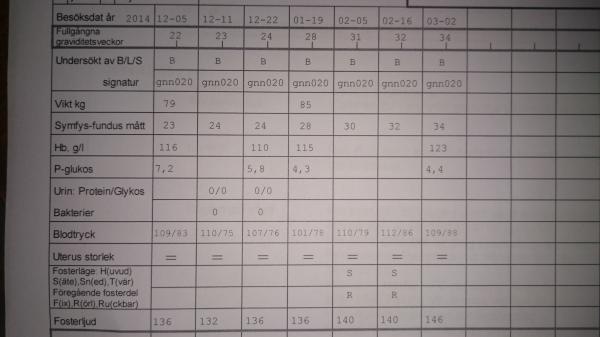 Besöksdat år 2014 12-05 12-11 12-22 01-19 02-05 02-16 03-02
Fullgångna
graviditetsveckor 22 23 24 28 31 32 34
Undersökt av B/L/S B B B B B B B
signatur gnn020 gnn020 gnn020 gnn020 gnn020 gnn020 gnn020
Vikt kg 79 85
Symfys-fundus mått 23 24 24 28 30 32 34
Hb. g/l 116 110 115 123
P-glukos 7,2 5,8 4,3 4,4
Urin: Protein/Glykos 0/0 0/0
Bakterier 0 0
Blodtryck 109/83 110/75 107/76 101/78 110/79 112/86 109/88
Uterus storlek = = = = = = =
Fosterläge: H(uvud)
S(äte),Sn(ed),T(vär) S S
Föregående fosterdel
F(ix),R(örl),Ru(ckbar) R R
Fosterljud 136 132 136 136 140 140 146